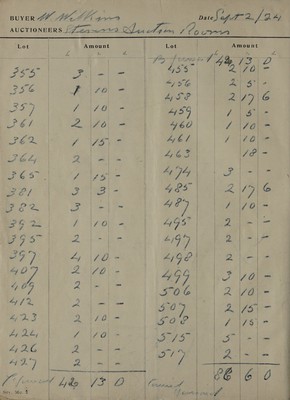 BUYER W. Williams Date Sept 2/24
AUCTIONEERS Stevens Auction Rooms
Lot Amount Lot Amount
£ s d £ s d
By forward 42 13 0
355 3 - -
356 1 10 -
357 1 10 -
361 2 10 -
362 1 15 -
364 2 - -
365 1 15 -
381 3 3 -
382 3 - -
392 1 10 -
395 2 - -
397 4 10 -
407 2 10 -
409 2 - -
412 2 - -
423 2 10 -
424 1 10 -
426 2 - -
427 2 - -
forward 42 13 0
455 2 10 -
456 2 5 -
458 2 17 6
459 1 5 -
460 1 10 -
461 1 10 -
463 18 -
474 3 - -
485 2 17 6
487 1 10 -
495 2 - -
497 2 - -
498 2 - -
499 3 10 -
506 2 10 -
507 2 15 -
508 1 15 -
515 5 - -
517 2 - -
86 6 0
forward